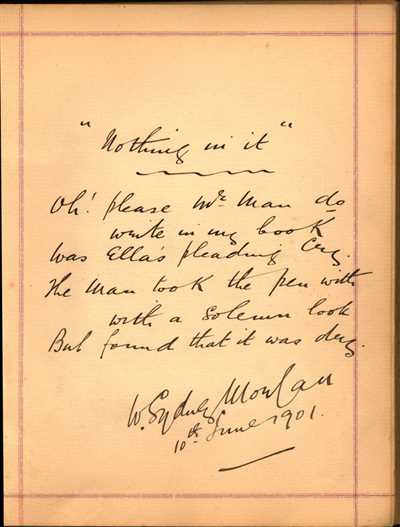 "Nothing in it"
Oh! please Mr. Man do
write in my book
Was Ella's pleading Cry.
The Man took the pen with
with a solemn look
But found that it was dry.
W. Sydney
10th June 1901.